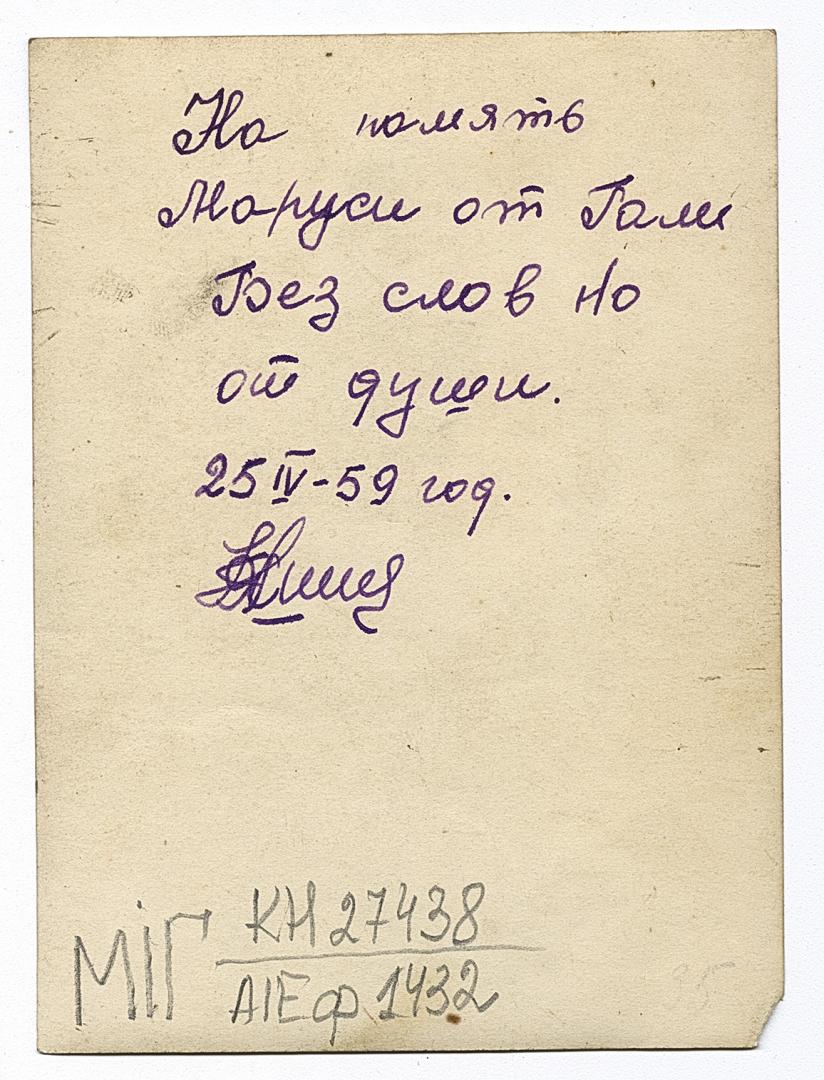 На память
Маруси от Гали
Без слов но
от души.
25 IV-59 год.
МІГ КН 27438
АІЕф 1432